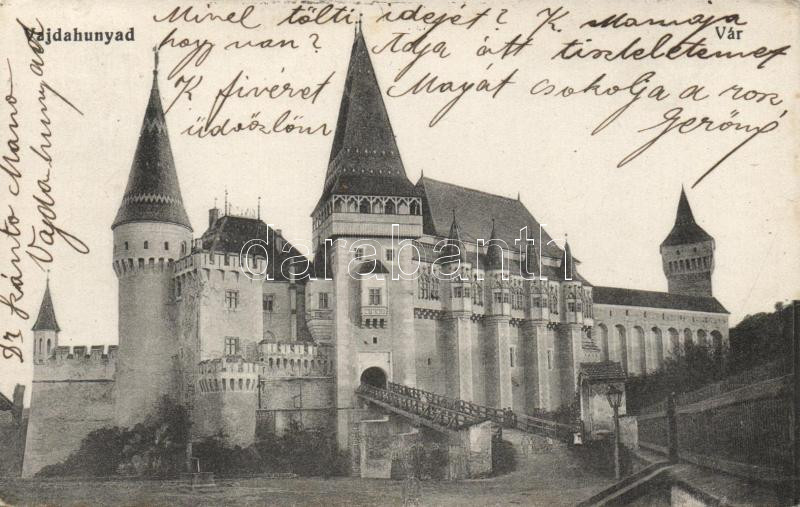 Vajdahunyad
Vár
Mivel tölti idejét? K. Mamája
hogy van? Adja átt tiszteletemet
K. fivéret Magát csokolja a
üdvözlöm
Dr Kántó Manó
Vajdahunyad
darabanth